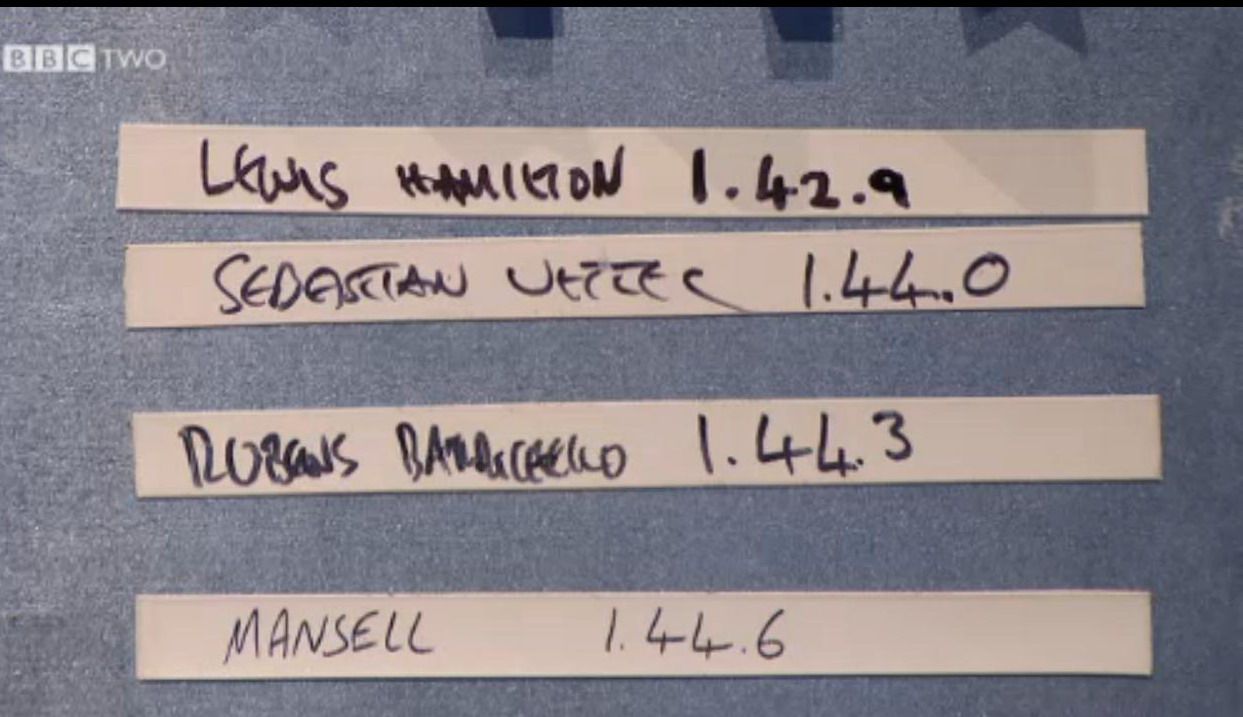 BBC TWO
LEWIS HAMILTON 1.42.9
SEBASTIAN VETTEL 1.44.0
RUBENS BARRICHELLO 1.44.3
MANSELL 1.44.6